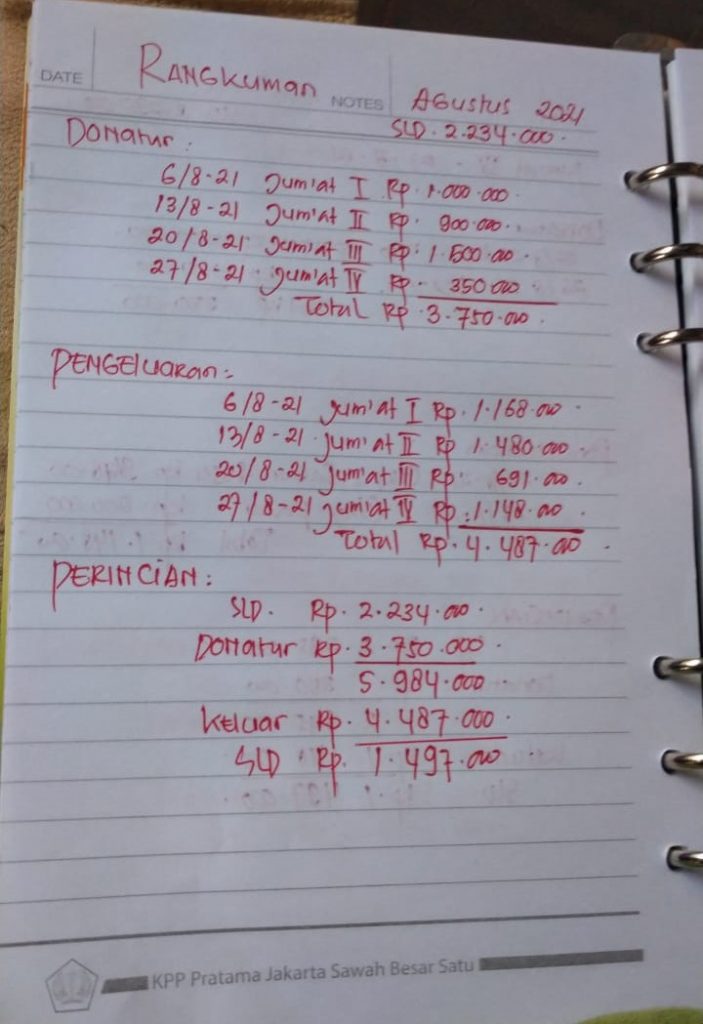 DATE RANGKUMAN NOTES AGUSTUS 2021
SLD. 2.234.000.
DONATUR:
6/8-21 Jum'at I Rp. 1.000.000.
13/8-21 Jum'at II Rp. 900.000.
20/8-21 Jum'at III Rp. 1.500.000.
27/8-21 Jum'at IV Rp. 350.000
Total Rp. 3.750.000.
PENGELUARAN:
6/8-21 Jum'at I Rp. 1.168.000
13/8-21. Jum'at II Rp 1.480.000.
20/8-21 Jum'at III Rp. 691.000.
27/8-21 Jum'at IV Rp. 1.148.000.
Total Rp. 4.487.000.
PERINCIAN:
SLD. Rp. 2.234.000.
DONATUR Rp. 3.750.000.
5.984.000
KELUAR Rp. 4.487.000.
SLD Rp. 1.497.000
KPP Pratama Jakarta Sawah Besar Satu